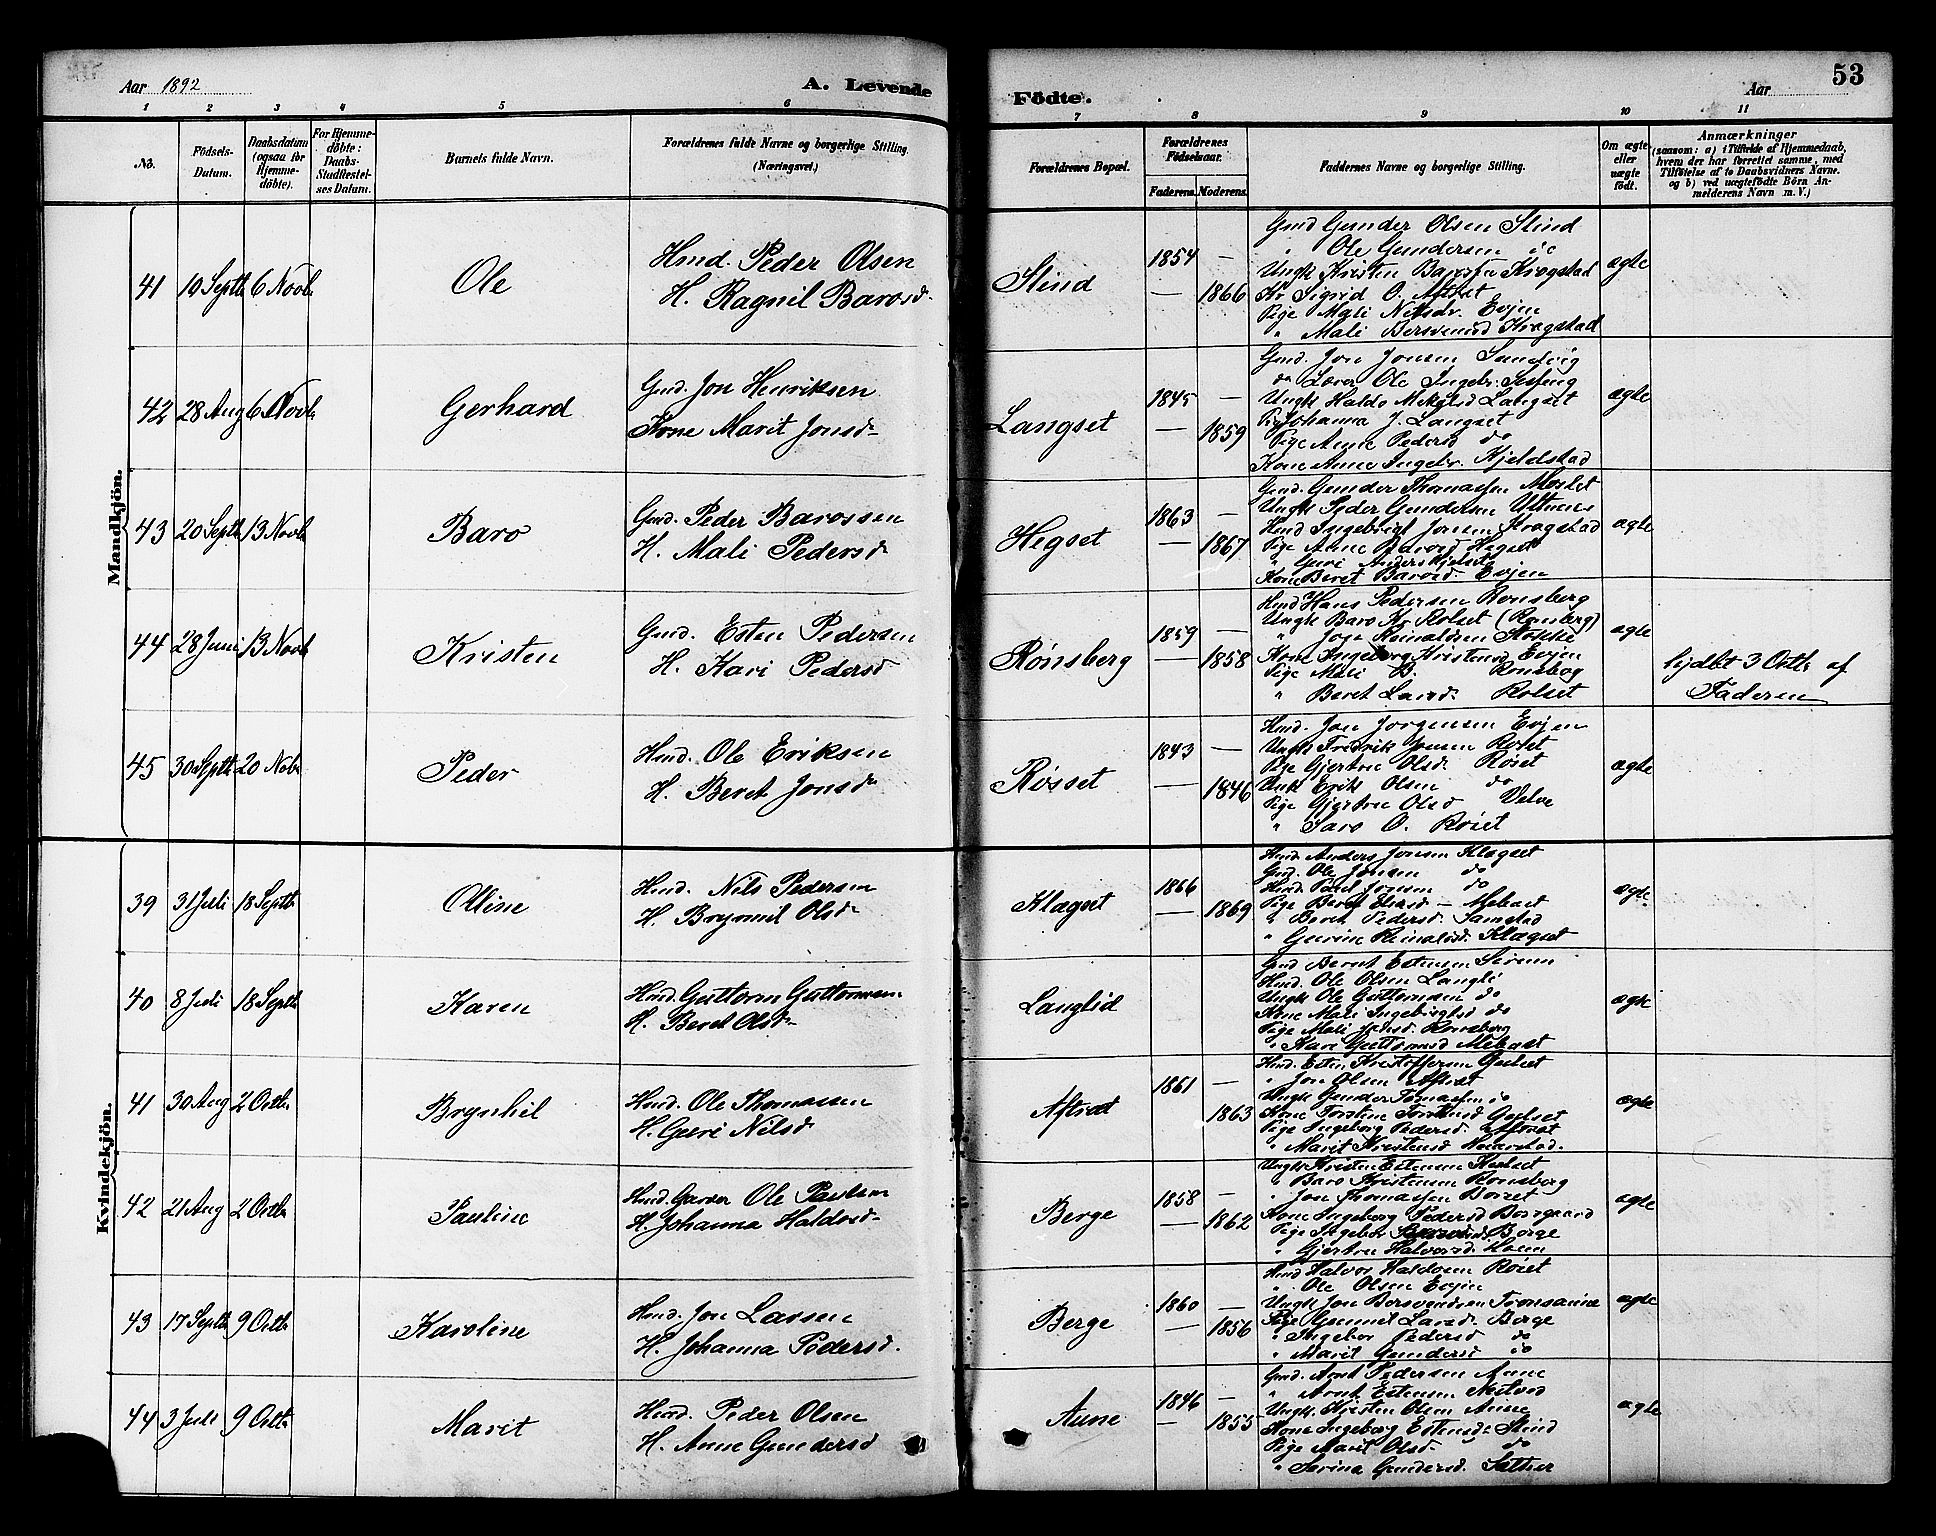 Aar 1892
A. Levende
Födte.
Aar
53
1 2 3 4 5 6 7 8 9 10 11
No.
Födsels-
Datum.
Daabsdatum
(ogsaa for
Hjemme-
döbte).
For Hjemme-
döbte:
Daabs-
Stadfæstel-
ses Datum.
Barnets fulde Navn.
Forældrenes fulde Navne og borgerlige Stilling.
(Næringsvei.)
Forældrenes Bopæl.
Forældrenes
Födselsaar.
Faderens. Moderens.
Faddernes Navne og borgerlige Stilling.
Om ægte
eller
uægte
födt.
Anmærkninger
(saasom: a) i Tilfælde af Hjemmedaab,
hvem der har forrettet samme, med
Tilföielse af to Daabsvidners Navne.
og b) ved uægtefödte Börn An-
melderens Navn m. V.)
Mandkjön.
41 10 Septb 6 Novb Ole
Hmd. Peder Olsen
H. Ragnil Barosd.
Slind
1854 —
— 1866
Gmd Gunder Olsen Slind
" Ole Gundersen do
Ungk Kristen Barosen Kragstad
Kr Sigrid O. Aftret
Pige Mali Nilsdr. Evjen
" Mali Bersvensd Kragstad
ægte
42 28 Aug 6 Novb Gerhard
Gmd. Jon Henriksen
Kone Marit Jonsd
Langset
1845 —
— 1859
Gmd. Jon Jonsen Sandvig
do Lærer Ole Ingebr.
Ungk Haldo Langset
Pige Johanna J. Langset
Pige Anne Pedersd do
Kone Anne Ingebr. Kjeldstad
ægte
43 20 Septb 13 Novb Baro
Gmd. Peder Barossen
H. Mali Pedersd
Hegset
1863 —
— 1867
Gmd. Gunder Thomassen Moslet
Ungk Peder Gundersen
Hmd Ingebrigt Jonsen Kragstad
Pige Anne Barosd Hegset
" Guri
Kone Beret Barosd. Evjen
ægte
44 28 Juni 13 Novb Kristen
Gmd. Esten Pedersen
H. Kari Pedersd
Rønsberg
1859 —
— 1858
Hmd Hans Pedersen Rønsberg
Ungk Baro Kr Rolset (Rønsberg)
Kone Ingeborg Kristensd Evjen
Pige Mali B. Rønsberg
" Beret Larsd. Rolset
ægte
hjdbt 3 Octb af
Faderen
45 30 Septb 20 Nob Peder
Hmd. Ole Eriksen
H. Beret Jonsd
Røsset
1843 —
— 1846
Hmd. Jon Jorgensen Evjen
Ungk Fredrik Jonsen Roset
Pige Gjertru Olsd. Roset
Unk Erik Olsen do
Pige Gjertru Olsd Velve
" Saro O. Roset
ægte
Kvindekjön.
39 31 Juli 18 Septb Oline
Hmd. Nils Pedersen
H. Brynnil Olsd
Klægset
1866
— 1869
Hmd. Anders Jonsen Klegset
Gmd. Ole Jonsen do
Hmd. Paul Jonsen do
Pige Beret Olsd — Mebast
" Beret Pedersd. Samstad
" Gurine Reinaldsd. Klægset
ægte
40 8 Juli 18 Septb Karen
Hmd Guttorm Guttormsen
H. Beret Olsd
Langlid
Gmd Bernt Estensen
Hmd. Ole Olsen Langli
Ungk Ole Guttormsen do
Kone Mari Ingebrigtsd do
Pige Mali Jonsd. Rønsberg
" Kari Guttormsd Mebast
ægte
41 30 Aug 2 Octb Brynhil
Hmd. Ole Thomassen
H. Guri Nilsd
Aftræt
1861 —
1863
Hmd. Esten Kristoffersen Gulset
" Jon Olsen Aftret
Ungk Gunder Tomassen do
Kone Torstine Gulset
Pige Ingeborg Pedersd. Aftræt
" Marit Kristensd Haarstad.
ægte
42 21 Aug 2 Octb Pauline
Hmd. Garver Ole Paulsen
H. Johanna Haldosd
Berge
1858 —
— 1862
Ungk Kristen Estensen
" Baro Kristensen Rønsberg
" Jon Thomassen
Kone Ingeborg Pedersd
Pige Ingebor Berge
" Gjertru Halvorsd.
ægte
43 17 Septb 9 Octb Karoline
Hmd. Jon Larsen
H. Johanna Pedersd.
Berge
1860 —
— 1856
Hmd Halvor Haldosen Roset
" Ole Olsen Evjen
Ungk Jon Bersvendsen
Pige Gunnil Larsd. Berge
" Ingebor Pedersd do
" Marit Gundersd do
ægte
44 3 Juli 9 Octb Marit
Hmd. Peder Olsen
H. Anne Gundersd
Aune
1846 —
— 1855
Gmd. Arnt Pedersen Aune
" Arnt Estensen
Ungk. Kristen Olsen Aune
Kone Ingeborg Estensd. Slind
Pige Marit Olsd. do
" Serina Gundersd. Sether
ægte